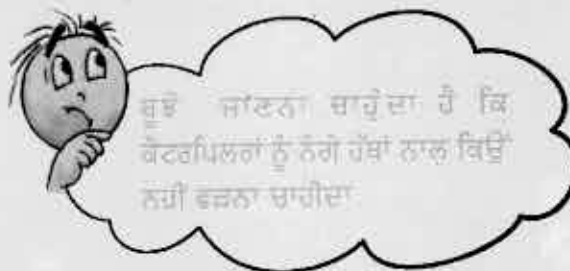 ਬੂਝੋ ਜਾਂਣਨਾ ਚਾਹੁੰਦਾ ਹੈ ਕਿ
ਕੇਟਰਪਿਲਰਾਂ ਨੂੰ ਨੰਗੇ ਹੱਥਾਂ ਨਾਲ ਕਿਉਂ
ਨਹੀਂ ਫੜਨਾ ਚਾਹੀਦਾ